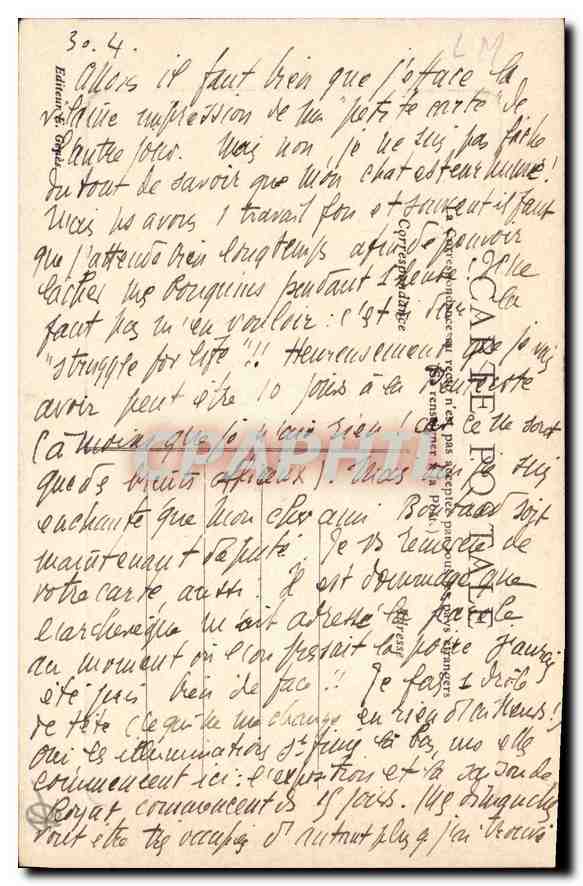 30.4.
L M
Allons il faut bien que j'efface la
vilaine impression de ma petite carte de
l'autre jour. Mais non, je ne suis pas fâché
du tout de savoir que mon chat est
Mais ns avons 1 travail fou et souvent il faut
que j'attende bien longtemps afin de pouvoir
lâcher mes bouquins pendant 1 heure. Il ne
faut pas m'en vouloir : c'est la
"struggle for life"!! Heureusement que je vais
avoir peut être 10 jours à la Pentecôte
(à moins que je n'aie rien! car ce ne sont
que des bruits). Mais je suis
enchanté que mon cher ami soit
maintenant député. Je vs remercie de
votre carte aussi. Il est dommage que
l'archevêque m'ait adressé la parole
au moment où l'on pressait la poire. J'aurais
été pris bien de face!! Je fais 1 drôle
de tête (ce qui ne me change en rien d'ailleurs!)
Oui les illuminations st finies là bas, mais elles
commencent ici : l'exposition et la saison de
Royat commencent ds 15 jours. Mes dimanches
vont être très occupés d'autant plus q j'ai trouvé
CARTE POSTALE
La Correspondance au recto n'est pas acceptée par tous les pays étrangers
(Se renseigner à la Poste.)
Correspondance
Adresse
Editeur, E. Gouès
CPARAMA